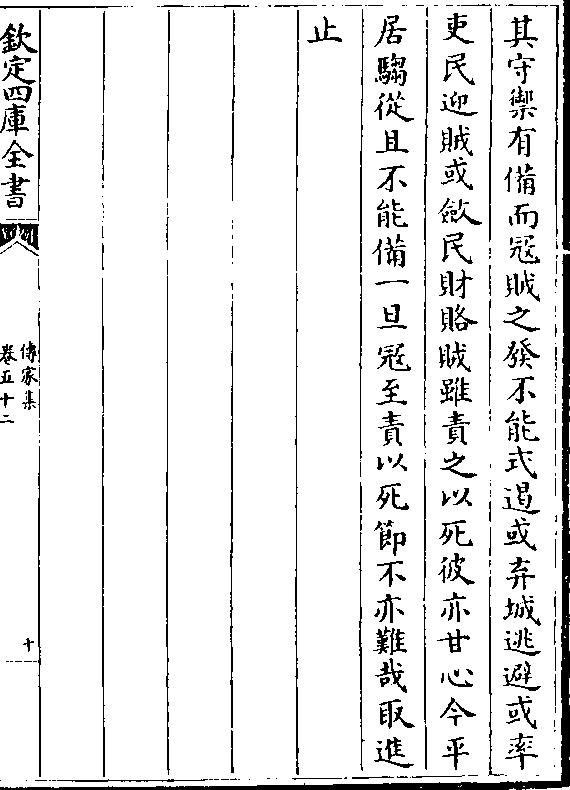 其守禦有備而冦賊之發不能式遏或弃城逃避或率
吏民迎賊或斂民財賂賊雖責之以死彼亦甘心今平
居騶從且不能備一旦冦至責以死節不亦難哉取進
止
欽定四庫全書
傳家集
卷五十二
十